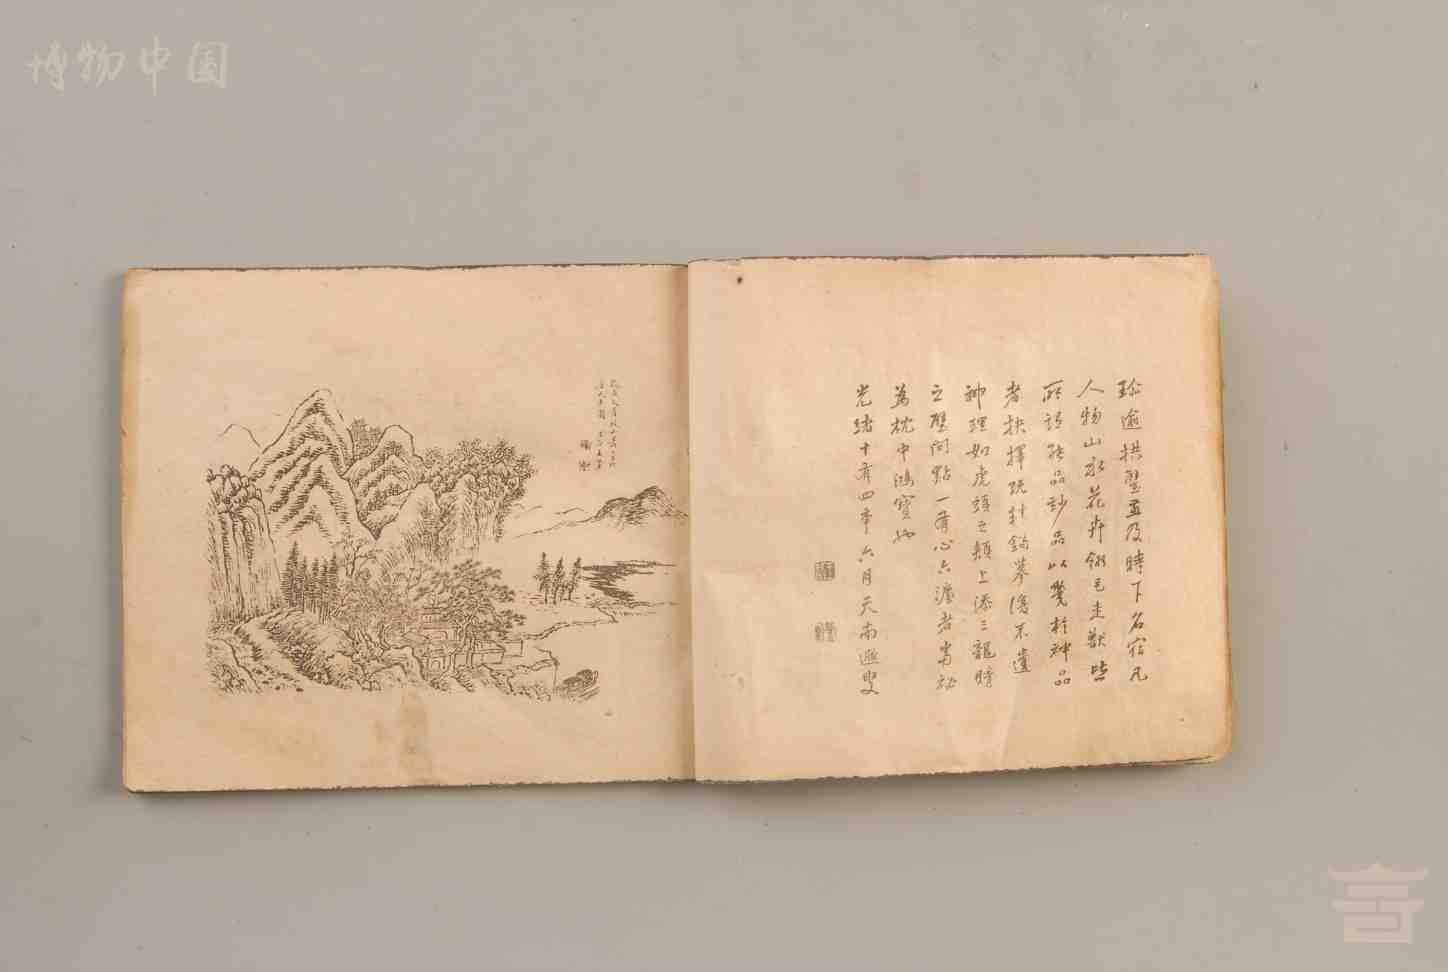 博物中国
珍逾拱璧並及時下名宿凡
人物山水花卉翎毛走獸皆
所謂能品妙品以幾於神品
者抉擇既針鉤摹復不遺
神理如虎頭之頰上添三龍時
之壁間點一有心六法者當祕
為枕中鴻寶也
光緒十有四年六月天南遯叟